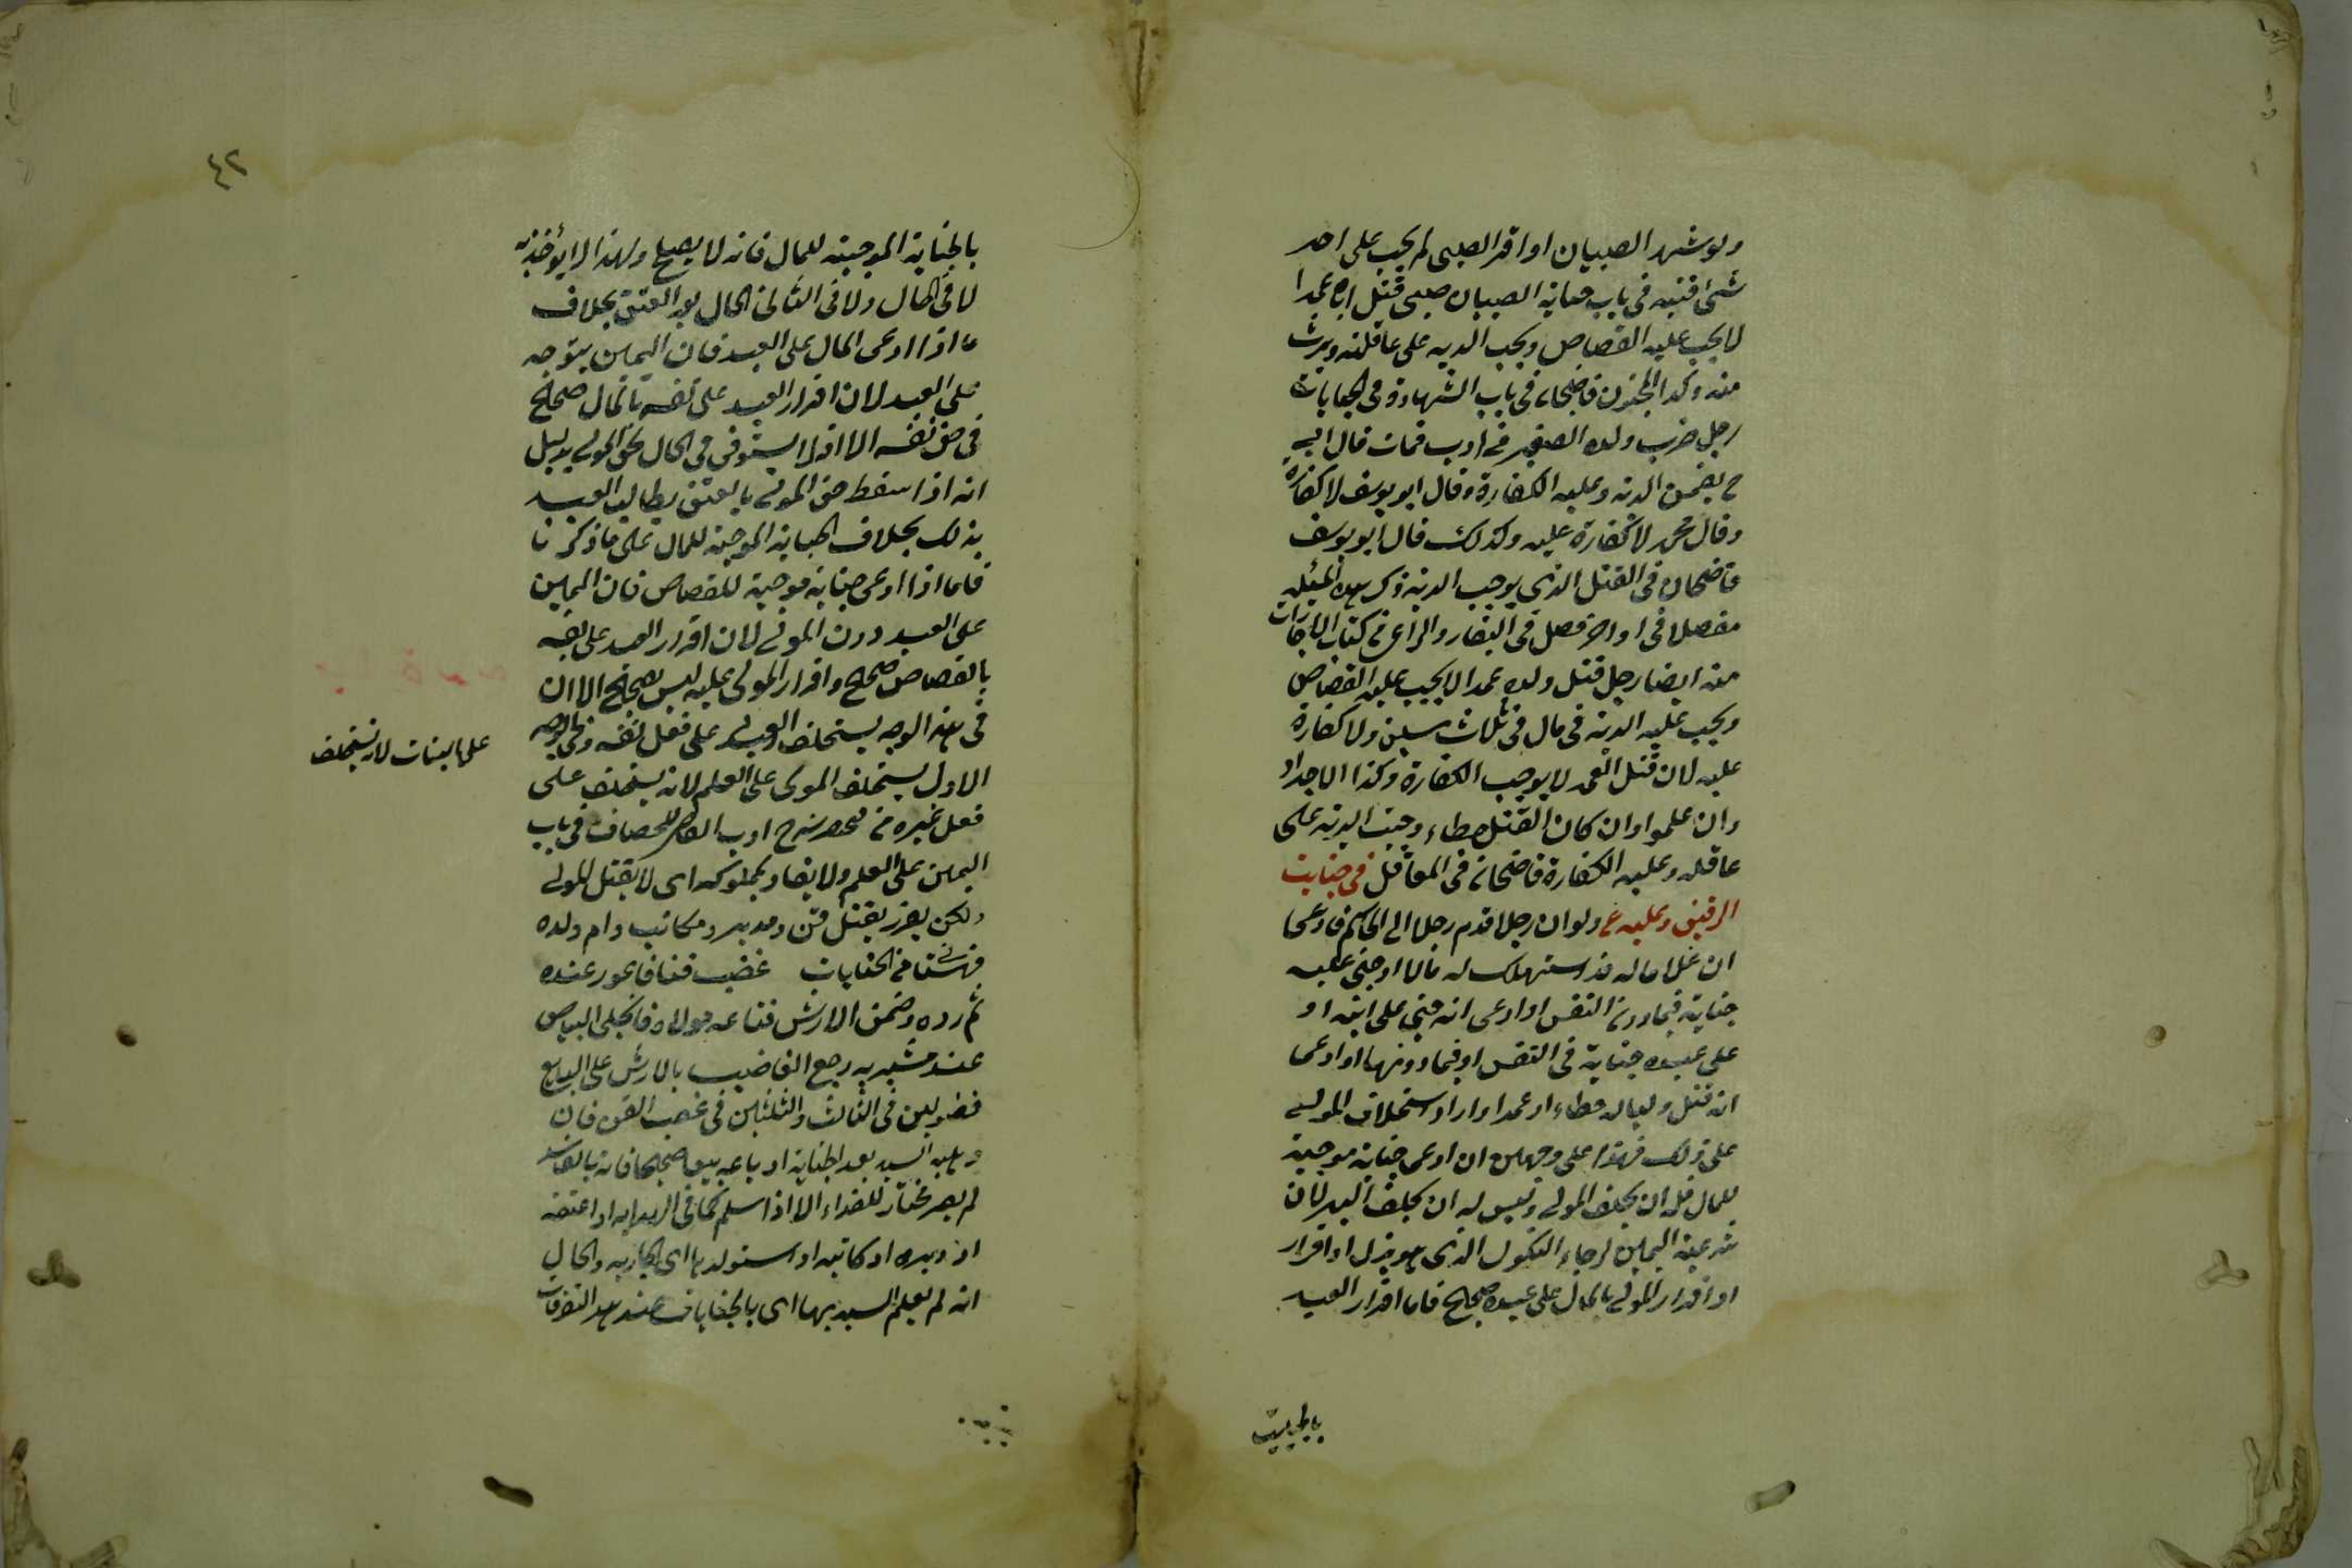 ولو شهد الصبيان او اقر الصبى لم يجب على احد
شئ قنيه فى باب جناية الصبيان صبى قتل اباه عمدا
لا يجب عليه القصاص ويجب الدية على عاقلته ويرث
منه وكذا المجنون قاضيخان فى باب الشهادة فى الجنايات
رجل ضرب ولده الصغير فى ادب فمات قال ابو
ح يضمن الدية وعليه الكفارة وقال ابو يوسف لا كفارة
وقال محمد لا كفارة عليه وكذلك قال ابو يوسف
قاضيخان فى القتل الذى يوجب الدية ذكر هذه المسئلة
مفصلا فى اواخر فصل فى البقار والراعى فى كتاب الاجارات
منه ايضا رجل قتل ولده عمدا لا يجب عليه القصاص
ويجب عليه الدية فى مال فى ثلاث سنين ولا كفارة
عليه لان قتل العمد لا يوجب الكفارة وكذا الاجداد
وان علموا وان كان القتل خطاء وجبت الدية على
عاقله وعليه الكفارة قاضيخان فى المعاقل فى جنايت
الرقيق وعليه ع ولو ان رجلا قدم رجلا الى الحاكم فادعى
ان غلاما له قد استهلك له مالا او جنى عليه
جناية فيما دون النفس او ادعى انه جنى على ابنه او
على عبده جناية فى النفس او فيما دونها او ادعى
انه قتل وليا له خطاء او عمدا واراد استحلاف المولى
على ذلك فهذا على وجهين ان ادعى جناية موجبة
للمال فله ان يحلف المولى وليس له ان يحلف العبد لان
شرعية اليمين لرجاء النكول الذى هو بذل او اقرار
او اقرار المولى بالمال على عبده صحيح فاما اقرار العبد
بالجناية الموجبة للمال فانه لا يصح ولهذا لا يؤخذ به
لا فى الحال ولا فى الثانى الحال بعد العتق بخلاف
ما اذا ادعى المال على العبد فان اليمين يتوجه
على العبد لان اقرار العبد على نفسه بالمال صحيح
فى حق نفسه الا انه لا يستوفى فى الحال لحق المولى بدليل
انه اذا سقط حق المولى بالعتق يطالب العبد
بذلك بخلاف الجناية الموجبة للمال على ما ذكرنا
فاما اذا ادعى جناية موجبة للقصاص فان اليمين
على العبد دون المولى لان اقرار العبد على نفسه
بالقصاص صحيح واقرار المولى عليه ليس بصحيح الا ان
فى هذا الوجه يستحلف العبد على فعل نفسه وفى الوجه
الاول يستحلف المولى على العلم لانه يستحلف على
على البتات لانه يستحلف
فعل غيره من شرح ادب القاضى للخصاف فى باب
اليمين على العلم ولا يقاد بمملوكه اى لا يقتل المولى
ولكن يعزر بقتل قن ومدبر ومكاتب وام ولده
قهستانى فى الجنايات غصب قنا فاعور عنده
ثم رده وضمن الارش فباعه مولاه فانجلى البياض
عند مشتريه رجع الغاصب بالارش على البايع
فصولين فى الثالث والثلثين فى غصب القن فان
وهبه السيد بعد الجناية او باعه بيعا صحيحا فانه بالفاسد
لم يصر مختارا للفداء الا اذا سلم كما فى الهداية او اعتقه
او دبره او كاتبه او استولدها اى الجارية والحال
انه لم يعلم السيد بها اى بالجنايات عند هذه التصرفات
٤٢